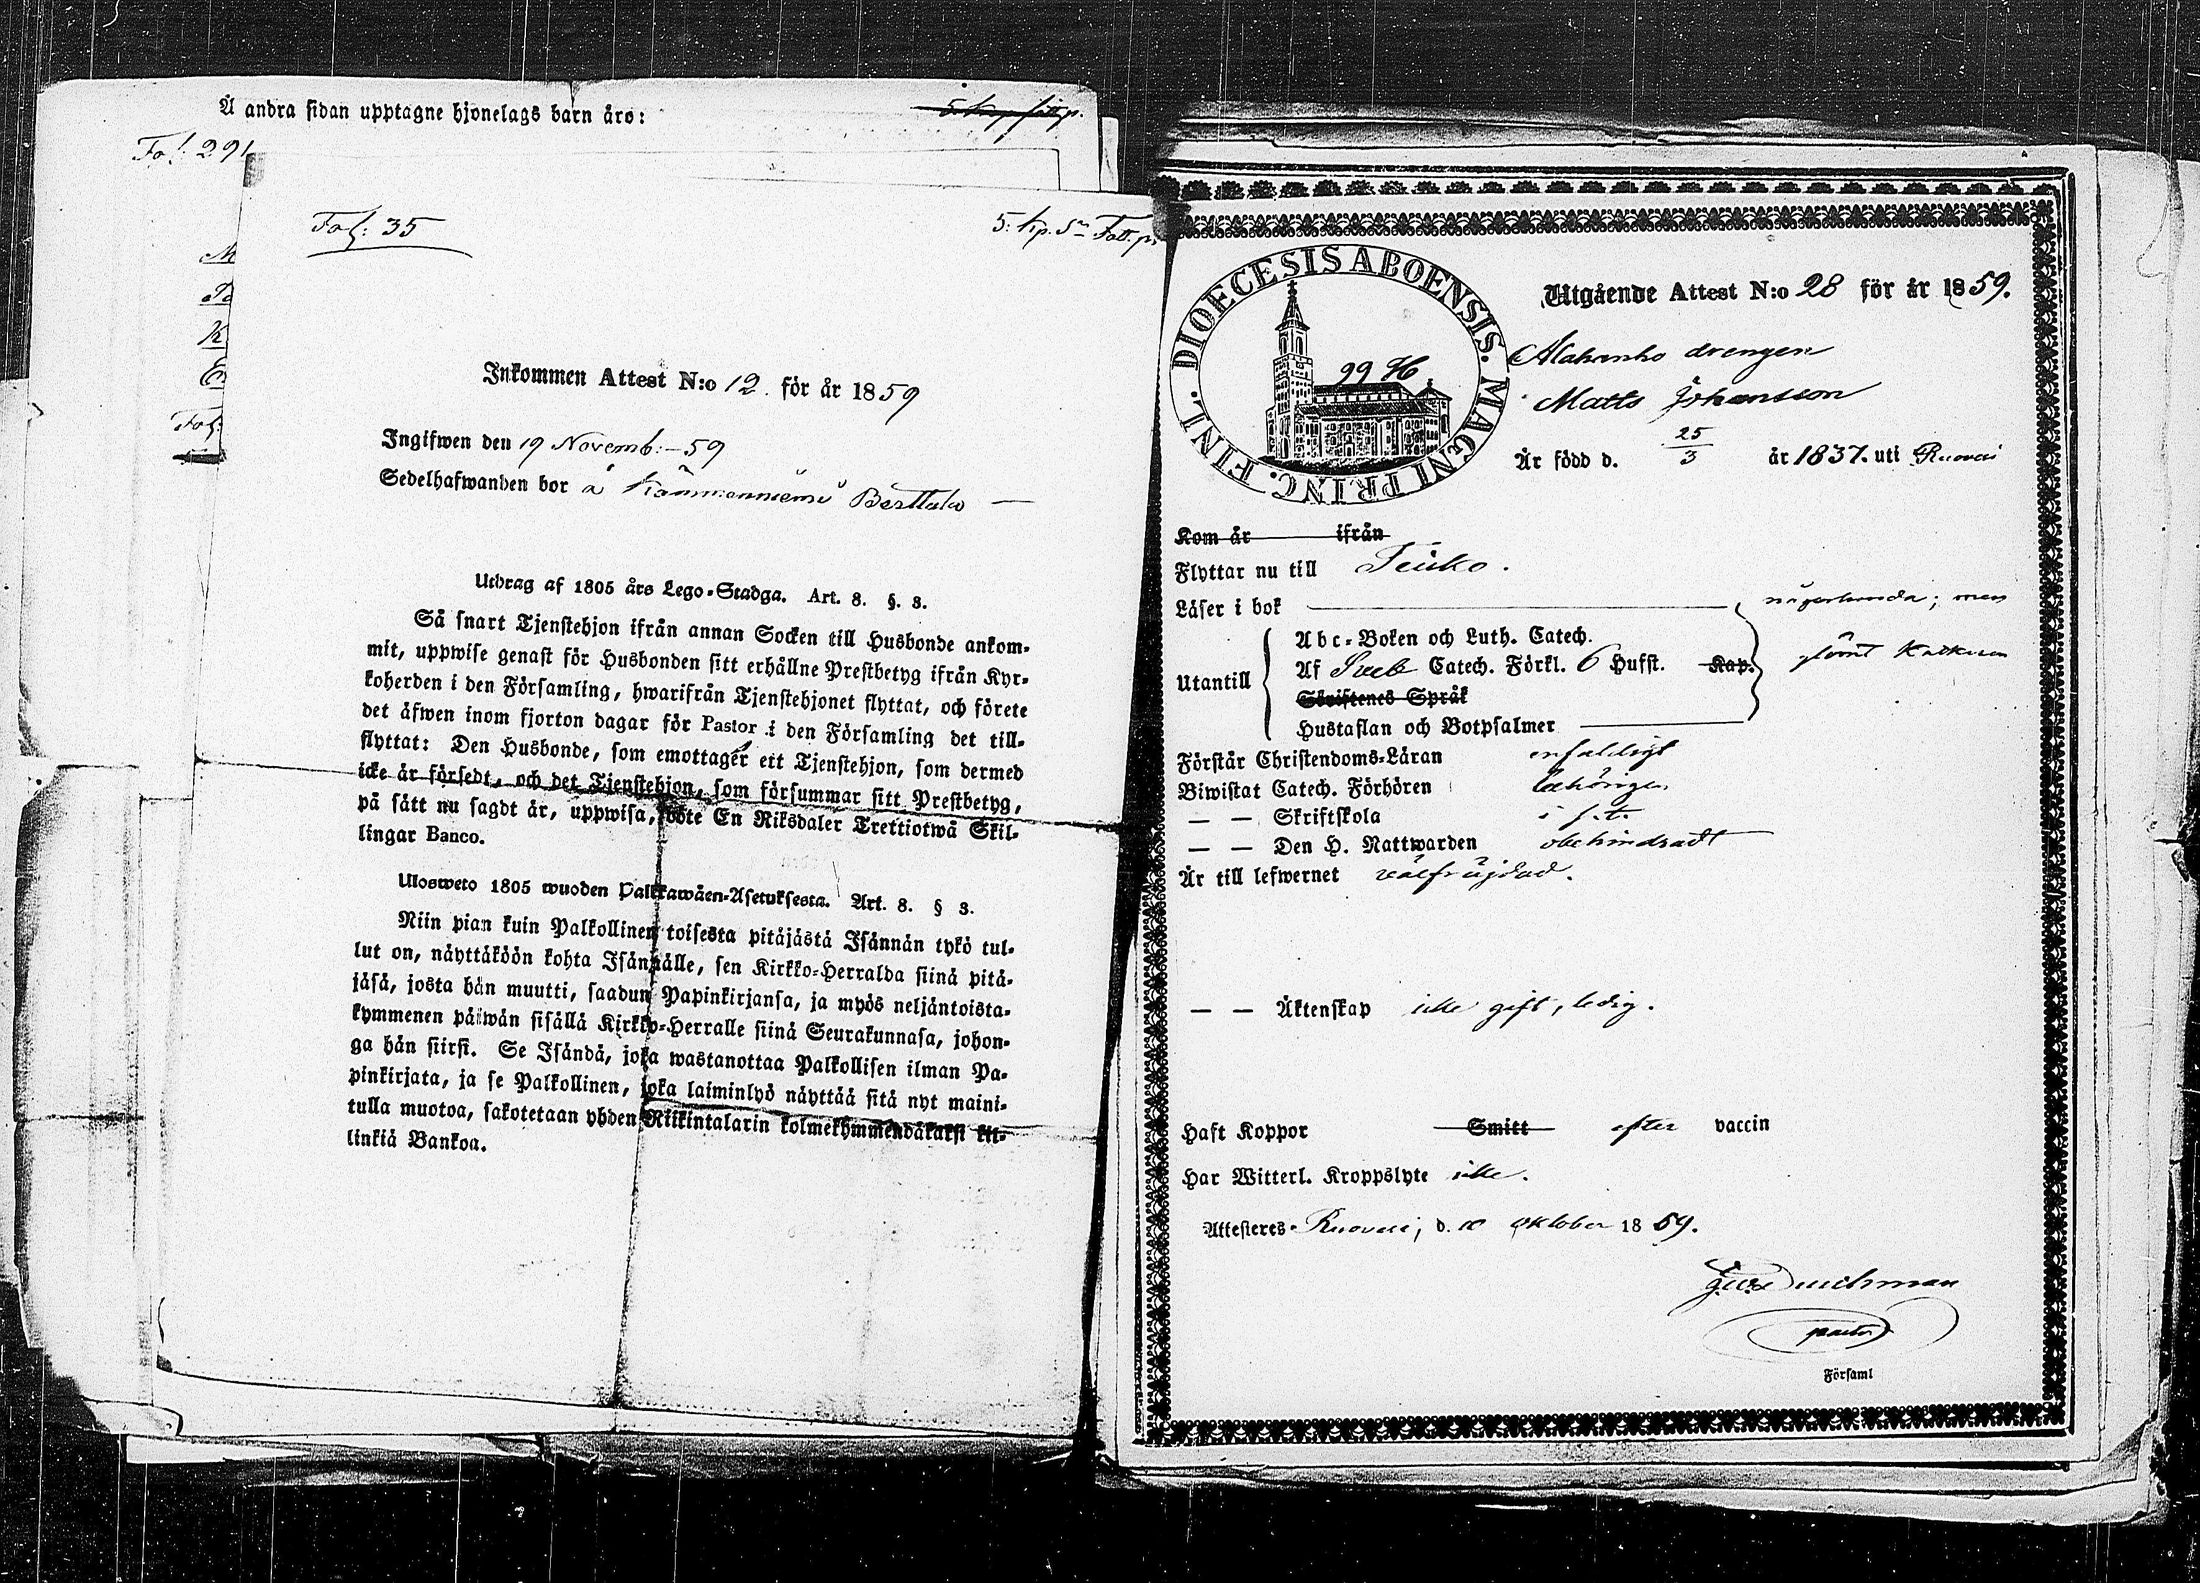 Å andra sidan upptagne hjonelags barn äro:
Fol. 291
Fol: 35
5: kp. S:n Fatt. p.
M
K
E
Fol:
Inkommen Attest N:o 12. för år 1859
Ingifwen den 19 Novemb: -59
Sedelhafwanden bor å Kämmenniemi Berttala
Utdrag af 1805 års Lego-Stadga. Art. 8. §. 3.
Så snart Tjenstehjon ifrån annan Socken till Husbonde ankom-
mit, uppwise genast för Husbonden sitt erhållne Prestbetyg ifrån Kyr-
koherden i den Församling, hwarifrån Tjenstehjonet flyttat, och förete
det äfwen inom fjorton dagar för Pastor i den Församling det till-
flyttat: Den Husbonde, som emottager ett Tjenstehjon, som dermed
icke är försedt, och det Tjenstehjon, som försummar sitt Prestbetyg,
på sätt nu sagdt är, uppwisa, böte En Riksdaler Trettiotwå Skil-
lingar Banco.
Ulosweto 1805 wuoden Palkkawäen-Asetuksesta. Art. 8. § 3.
Niin pian kuin Palkollinen toisesta pitäjästä Isännän tykö tul-
lut on, näyttäköön kohta Isännälle, sen Kirkko-Herralda siinä pitä-
jäsä, josta hän muutti, saadun Papinkirjansa, ja myös neljäntoista-
kymmenen päiwän sisällä Kirkko-Herralle siinä Seurakunnasa, johon-
ga hän siirsi. Se Isändä, joka wastanottaa Palkollisen ilman Pa-
pinkirjata, ja se Palkollinen, joka laiminlyö näyttää sitä nyt maini-
tulla muotoa, sakotetaan yhden Riikintalarin kolmekymmendäkaksi kil-
linkiä Bankoa.
DIOECESIS ABOENSIS. MAGNI PRINC. FINL.
99 H
Utgående Attest N:o 28 för år 1859.
drengen
Matts Johansson
Är född d. 25/3 år 1837. uti Ruovesi
Kom år ifrån
Flyttar nu till Teisko.
Läser i bok någorlunda; men
Utantill
Abc-Boken och Luth. Catech.
Af Sveb Catech. Förkl. 6 Hufst. Kap. glömt
Skriftenes Språk
Hustaflan och Botpsalmer
Förstår Christendoms-Läran enfaldigt
Biwistat Catech. Förhören behörigen
— — Skriftskola i s. t.
— — Den H. Nattwarden obehindradt
Är till lefwernet välfräjdad.
— — Äktenskap icke gift, ledig.
Haft Koppor Smitt efter vaccin
Har Witterl. Kroppslyte icke.
Attesteras Ruovesi, d. 10 Oktober 1859.
pastor
Församl